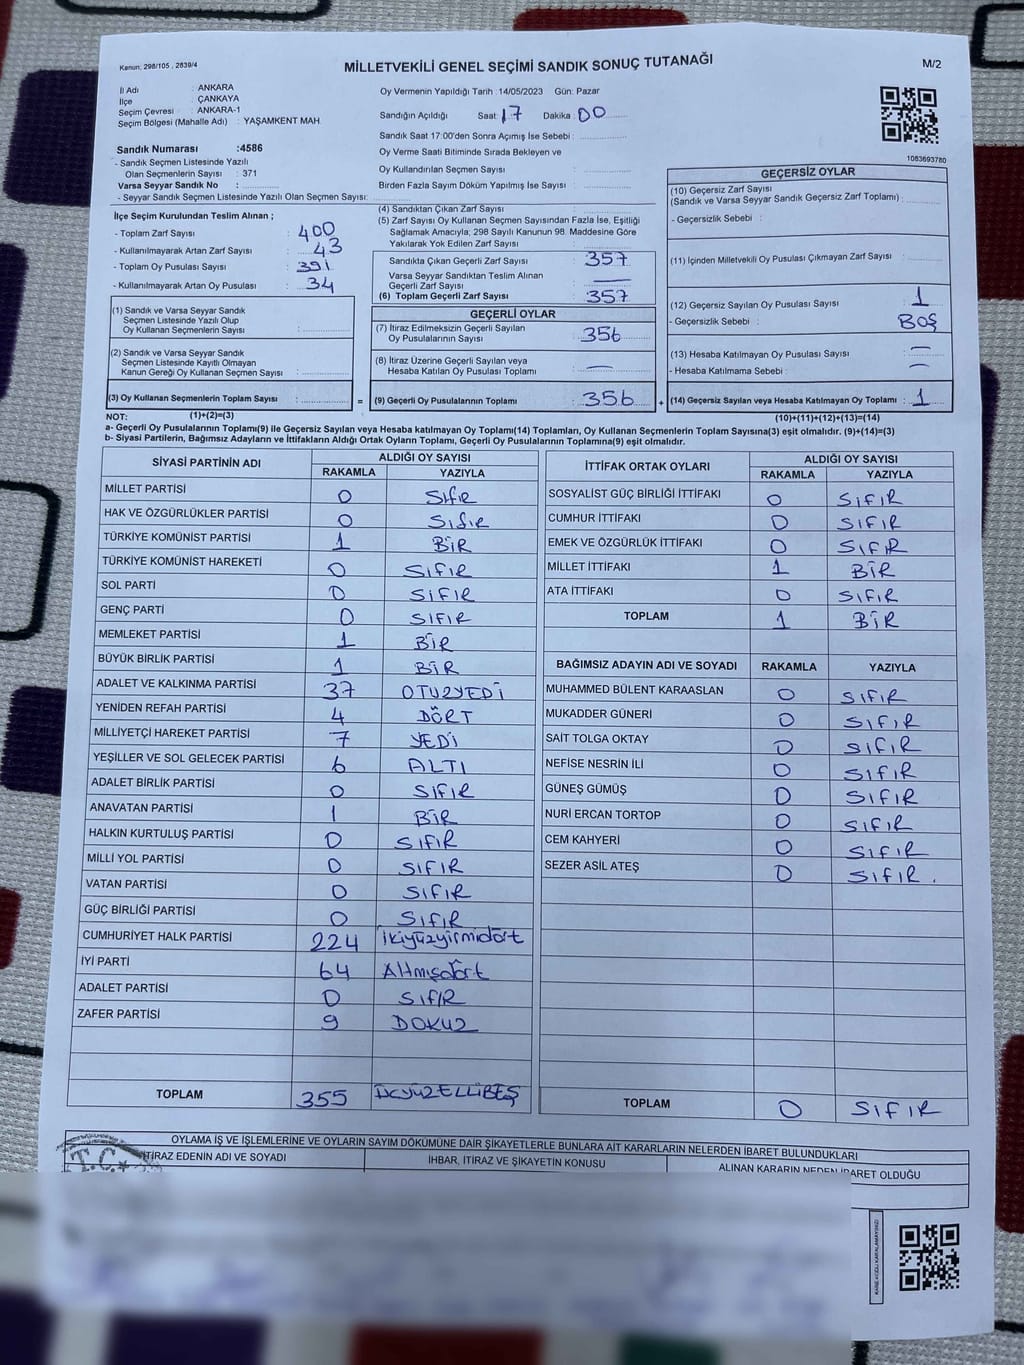 Kanun: 298/105 , 2839/4
MİLLETVEKİLİ GENEL SEÇİMİ SANDIK SONUÇ TUTANAĞI
M/2
İl Adı : ANKARA
İlçe : ÇANKAYA
Seçim Çevresi : ANKARA-1
Seçim Bölgesi (Mahalle Adı) : YAŞAMKENT MAH.
Sandık Numarası :4586
- Sandık Seçmen Listesinde Yazılı
Olan Seçmenlerin Sayısı : 371
Varsa Seyyar Sandık No :
- Seyyar Sandık Seçmen Listesinde Yazılı Olan Seçmen Sayısı:
Oy Vermenin Yapıldığı Tarih :14/05/2023 Gün: Pazar
Sandığın Açıldığı Saat: 17 Dakika : 00
Sandık Saat 17:00'den Sonra Açılmış İse Sebebi :
Oy Verme Saati Bitiminde Sırada Bekleyen ve
Oy Kullandırılan Seçmen Sayısı :
Birden Fazla Sayım Döküm Yapılmış İse Sayısı :
1083693780
İlçe Seçim Kurulundan Teslim Alınan ;
- Toplam Zarf Sayısı : 400
- Kullanılmayarak Artan Zarf Sayısı : 43
- Toplam Oy Pusulası Sayısı : 391
- Kullanılmayarak Artan Oy Pusulası : 34
(1) Sandık ve Varsa Seyyar Sandık
Seçmen Listesinde Yazılı Olup
Oy Kullanan Seçmenlerin Sayısı :
(2) Sandık ve Varsa Seyyar Sandık
Seçmen Listesinde Kayıtlı Olmayan
Kanun Gereği Oy Kullanan Seçmen Sayısı :
(3) Oy Kullanan Seçmenlerin Toplam Sayısı :
(4) Sandıktan Çıkan Zarf Sayısı :
(5) Zarf Sayısı Oy Kullanan Seçmen Sayısından Fazla İse, Eşitliği
Sağlamak Amacıyla; 298 Sayılı Kanunun 98. Maddesine Göre
Yakılarak Yok Edilen Zarf Sayısı :
Sandıkta Çıkan Geçerli Zarf Sayısı : 357
Varsa Seyyar Sandıktan Teslim Alınan
Geçerli Zarf Sayısı : —
(6) Toplam Geçerli Zarf Sayısı : 357
GEÇERLİ OYLAR
(7) İtiraz Edilmeksizin Geçerli Sayılan
Oy Pusulalarının Sayısı : 356
(8) İtiraz Üzerine Geçerli Sayılan veya
Hesaba Katılan Oy Pusulası Toplamı : —
= (9) Geçerli Oy Pusulalarının Toplamı : 356
GEÇERSİZ OYLAR
(10) Geçersiz Zarf Sayısı
(Sandık ve Varsa Seyyar Sandık Geçersiz Zarf Toplamı) :
- Geçersizlik Sebebi :
(11) İçinden Milletvekili Oy Pusulası Çıkmayan Zarf Sayısı :
(12) Geçersiz Sayılan Oy Pusulası Sayısı : 1
- Geçersizlik Sebebi : BOŞ
(13) Hesaba Katılmayan Oy Pusulası Sayısı : —
- Hesaba Katılmama Sebebi : —
+ (14) Geçersiz Sayılan veya Hesaba Katılmayan Oy Toplamı : 1
NOT: (1)+(2)=(3) (10)+(11)+(12)+(13)=(14)
a- Geçerli Oy Pusulaları Toplamı(9) ile Geçersiz Sayılan veya Hesaba katılmayan Oy Toplamı(14) Toplamları, Oy Kullanan Seçmenlerin Toplam Sayısına(3) eşit olmalıdır. (9)+(14)=(3)
b- Siyasi Partilerin, Bağımsız Adayların ve İttifakların Aldığı Ortak Oyların Toplamı, Geçerli Oy Pusulalarının Toplamına(9) eşit olmalıdır.
SİYASİ PARTİNİN ADI ALDIĞI OY SAYISI
RAKAMLA YAZIYLA
MİLLET PARTİSİ 0 Sıfır
HAK VE ÖZGÜRLÜKLER PARTİSİ 0 Sıfır
TÜRKİYE KOMÜNİST PARTİSİ 1 BİR
TÜRKİYE KOMÜNİST HAREKETİ 0 SIFIR
SOL PARTİ 0 SIFIR
GENÇ PARTİ 0 SIFIR
MEMLEKET PARTİSİ 1 BİR
BÜYÜK BİRLİK PARTİSİ 1 BİR
ADALET VE KALKINMA PARTİSİ 37 OTUZYEDİ
YENİDEN REFAH PARTİSİ 4 DÖRT
MİLLİYETÇİ HAREKET PARTİSİ 7 YEDİ
YEŞİLLER VE SOL GELECEK PARTİSİ 6 ALTI
ADALET BİRLİK PARTİSİ 0 SIFIR
ANAVATAN PARTİSİ 1 BİR
HALKIN KURTULUŞ PARTİSİ 0 SIFIR
MİLLİ YOL PARTİSİ 0 SIFIR
VATAN PARTİSİ 0 SIFIR
GÜÇ BİRLİĞİ PARTİSİ 0 SIFIR
CUMHURİYET HALK PARTİSİ 224 İkiyüzyirmidört
İYİ PARTİ 64 Altmışdört
ADALET PARTİSİ 0 SIFIR
ZAFER PARTİSİ 9 DOKUZ
TOPLAM 355 ÜÇYÜZELLİBEŞ
İTTİFAK ORTAK OYLARI ALDIĞI OY SAYISI
RAKAMLA YAZIYLA
SOSYALİST GÜÇ BİRLİĞİ İTTİFAKI 0 SIFIR
CUMHUR İTTİFAKI 0 SIFIR
EMEK VE ÖZGÜRLÜK İTTİFAKI 0 SIFIR
MİLLET İTTİFAKI 1 BİR
ATA İTTİFAKI 0 SIFIR
TOPLAM 1 BİR
BAĞIMSIZ ADAYIN ADI VE SOYADI RAKAMLA YAZIYLA
MUHAMMED BÜLENT KARAASLAN 0 SIFIR
MUKADDER GÜNERİ 0 SIFIR
SAİT TOLGA OKTAY 0 SIFIR
NEFİSE NESRİN İLİ 0 SIFIR
GÜNEŞ GÜMÜŞ 0 SIFIR
NURİ ERCAN TORTOP 0 SIFIR
CEM KAHYERİ 0 SIFIR
SEZER ASİL ATEŞ 0 SIFIR.
TOPLAM 0 SIFIR
OYLAMA İŞ VE İŞLEMLERİNE VE OYLARIN SAYIM DÖKÜMÜNE DAİR ŞİKAYETLERLE BUNLARA AİT KARARLARIN NELERDEN İBARET BULUNDUKLARI
T.C.
İTİRAZ EDENİN ADI VE SOYADI
İHBAR, İTİRAZ VE ŞİKAYETİN KONUSU
ALINAN KARARIN NEDEN İBARET OLDUĞU
KARE KODU KARALAMAYINIZ!